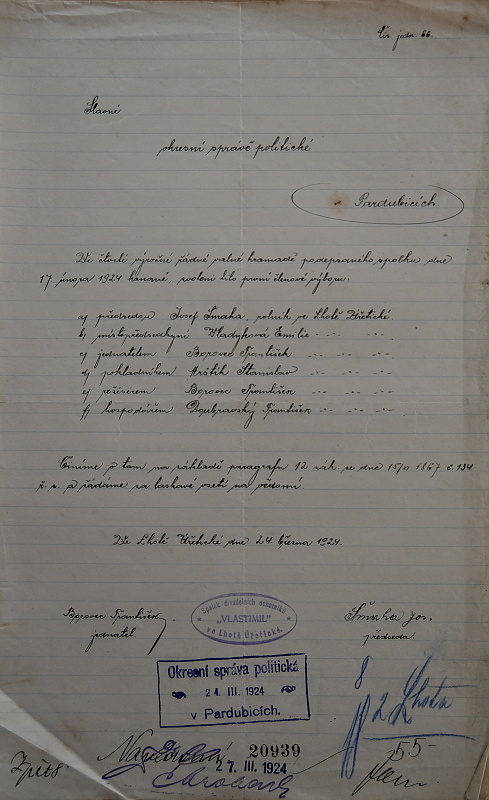 Čís. jedn. 66.
Slavné
okresní správě politické
v Pardubicích.
Ve čtvrté výroční řádné valné hromadě podepsaného spolku dne
17. února 1924 konané, zvoleni byli první členové výboru:
a) předsedou Josef Šmaha, rolník ve Lhotě Úřetické.
b) místopředsedkyní Hladyková Emilie -"- -"-
c) jednatelem Borovec František -"- -"-
d) pokladníkem Stanislav -"- -"-
e) režisérem Borovec František -"- -"-
f) hospodářem Doubravský František -"- -"-
Činíme o tom na základě paragrafu 12 zák. ze dne 15/11 1867 č. 134
ř. z. a žádáme za laskavé vzetí na vědomí.
Ve Lhotě Úřetické dne 24. března 1924.
Spolek divadelních ochotníků
„VLASTIMIL"
ve Lhotě Úřetické.
Borovec František
jednatel.
Šmaha Jos.
předseda.
Okresní správa politická
24. III. 1924
v Pardubicích.
8
2 Lhota
20939
27. III. 1924
55
Zpět